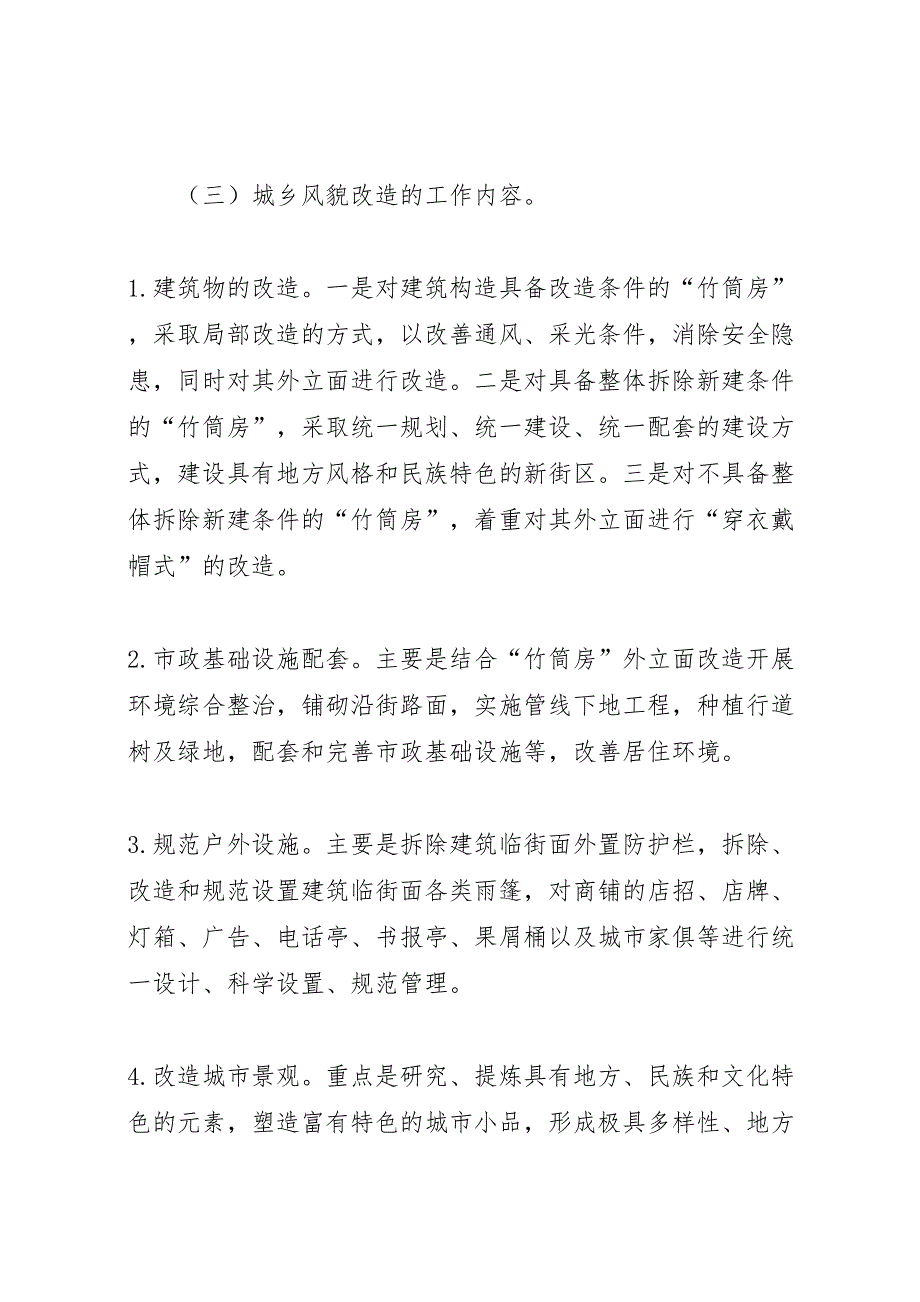 （三）城乡风貌改造的工作内容。
1.建筑物的改造。一是对建筑构造具备改造条件的“竹筒房”
，采取局部改造的方式，以改善通风、采光条件，消除安全隐
患，同时对其外立面进行改造。二是对具备整体拆除新建条件
的“竹筒房”，采取统一规划、统一建设、统一配套的建设方
式，建设具有地方风格和民族特色的新街区。三是对不具备整
体拆除新建条件的“竹筒房”，着重对其外立面进行“穿衣戴
帽式”的改造。
2.市政基础设施配套。主要是结合“竹筒房”外立面改造开展
环境综合整治，铺砌沿街路面，实施管线下地工程，种植行道
树及绿地，配套和完善市政基础设施等，改善居住环境。
3.规范户外设施。主要是拆除建筑临街面外置防护栏，拆除、
改造和规范设置建筑临街面各类雨篷，对商铺的店招、店牌、
灯箱、广告、电话亭、书报亭、果屑桶以及城市家俱等进行统
一设计、科学设置、规范管理。
4.改造城市景观。重点是研究、提炼具有地方、民族和文化特
色的元素，塑造富有特色的城市小品，形成极具多样性、地方